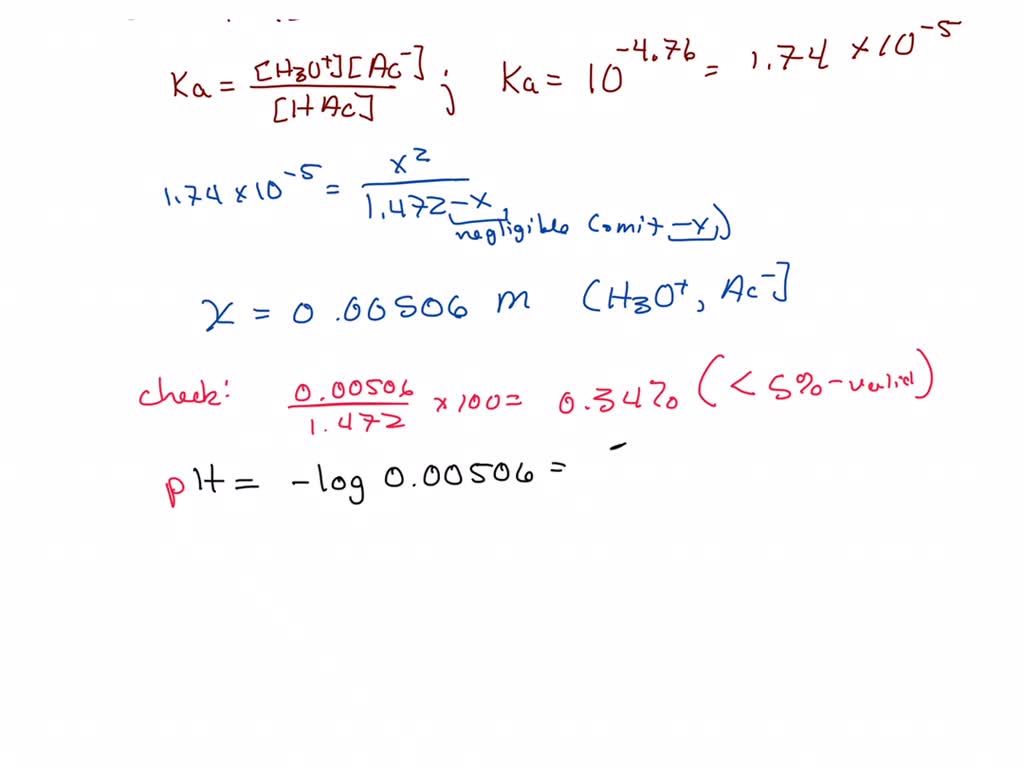 Ka = [H₃O⁺][Ac⁻] / [HAc] ; Ka = 10^-4.76 = 1.74 × 10^-5
1.74 × 10^-5 = x² / 1.472 - x
negligible (omit -x)
x = 0.00506 m (H₃O⁺, Ac⁻]
check: 0.00506 / 1.472 × 100 = 0.34% (< 5% - valid)
pH = - log 0.00506 =